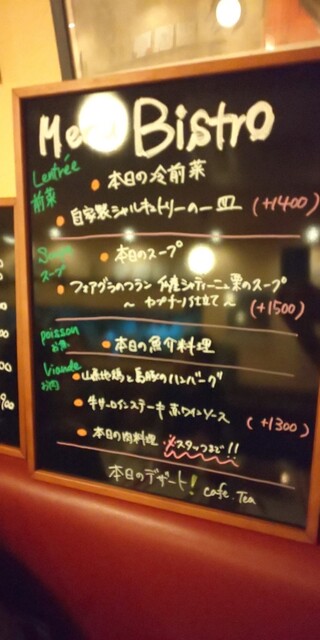 Menu Bistro
L'entrée
前菜
本日の冷前菜
自家製シャルキュトリーの一皿 (+1400)
Soupe
スープ
本日のスープ
フォアグラのフラン 産シャテーニュ栗のスープ
~ カプチーノ仕立て (+1500)
poisson
お魚
本日の魚介料理
Viande
お肉
地鶏と豚のハンバーグ
牛サーロインステーキ 赤ワインソース (+1300)
本日の肉料理 ※スタッフまで!!
本日のデザート! cafe. Tea